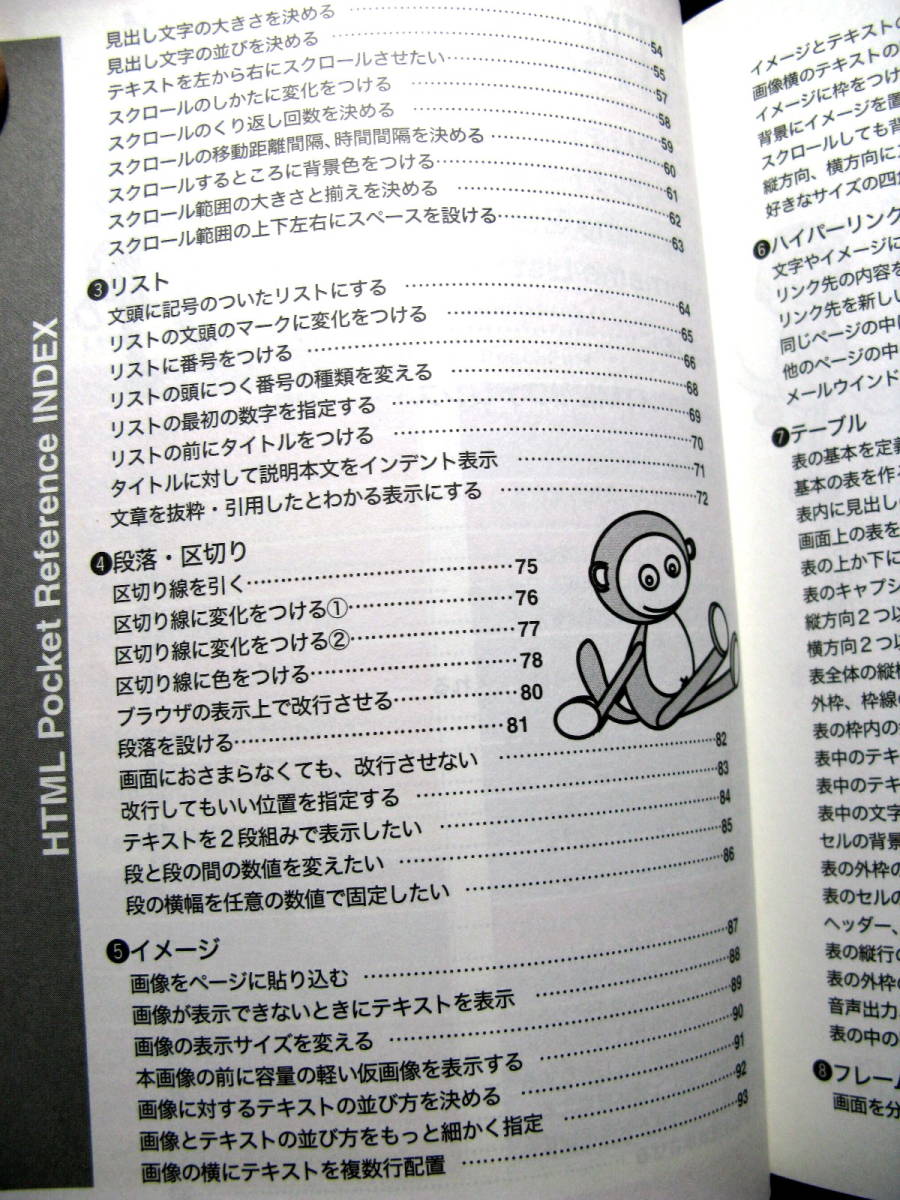 HTML Pocket Reference INDEX
見出し文字の大きさを決める……54
見出し文字の並びを決める……55
テキストを左から右にスクロールさせたい……57
スクロールのしかたに変化をつける……58
スクロールのくり返し回数を決める……59
スクロールの移動距離間隔、時間間隔を決める……60
スクロールするところに背景色をつける……61
スクロール範囲の大きさと揃えを決める……62
スクロール範囲の上下左右にスペースを設ける……63
❸リスト
文頭に記号のついたリストにする……64
リストの文頭のマークに変化をつける……65
リストに番号をつける……66
リストの頭につく番号の種類を変える……68
リストの最初の数字を指定する……69
リストの前にタイトルをつける……70
タイトルに対して説明本文をインデント表示……71
文章を抜粋・引用したとわかる表示にする……72
❹段落・区切り
区切り線を引く……75
区切り線に変化をつける①……76
区切り線に変化をつける②……77
区切り線に色をつける……78
ブラウザの表示上で改行させる……80
段落を設ける……81
画面におさまらなくても、改行させない……82
改行してもいい位置を指定する……83
テキストを２段組みで表示したい……84
段と段の間の数値を変えたい……85
段の横幅を任意の数値で固定したい……86
❺イメージ
画像をページに貼り込む……87
画像が表示できないときにテキストを表示……88
画像の表示サイズを変える……89
本画像の前に容量の軽い仮画像を表示する……90
画像に対するテキストの並び方を決める……91
画像とテキストの並び方をもっと細かく指定……92
画像の横にテキストを複数行配置……93
イメージとテキストの
画像横のテキストの
イメージに枠をつけ
背景にイメージを置
スクロールしても背
縦方向、横方向に
好きなサイズの四角
❻ハイパーリンク
文字やイメージに
リンク先の内容を
リンク先を新しい
同じページの中
他のページの中
メールウインド
❼テーブル
表の基本を定義
基本の表を作る
表内に見出し
画面上の表を
表の上か下に
表のキャプシ
縦方向２つ以
横方向２つ以
表全体の縦横
外枠、枠線の
表の枠内の
表中のテキ
表中のテキ
表中の文字
セルの背景
表の外枠の
表のセルの
ヘッダー、
表の縦行の
表の外枠の
音声出力
表の中の
❽フレーム
画面を分